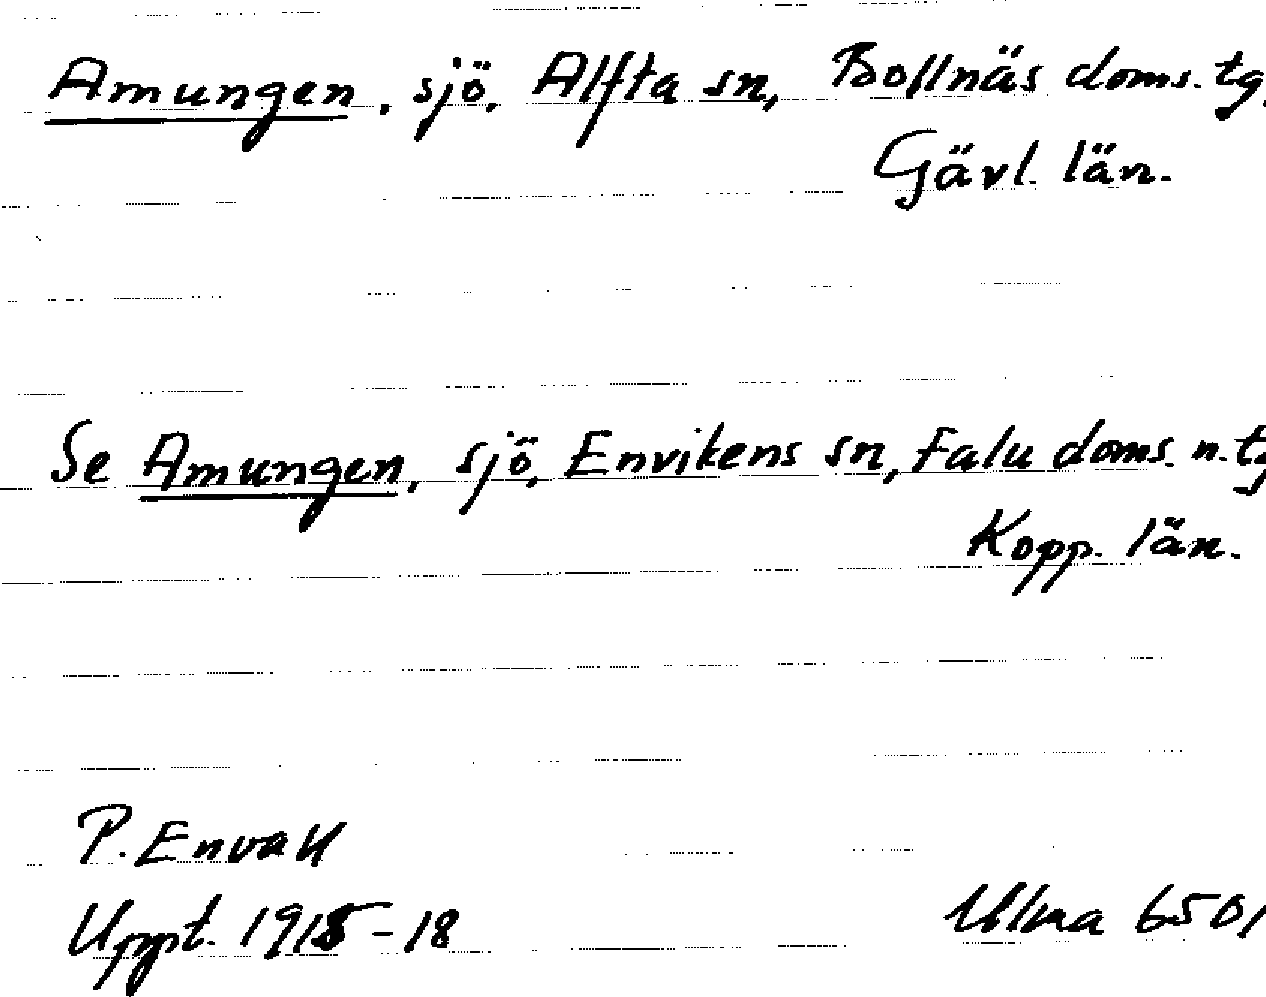 Amungen, sjö, Alfta sn, Bollnäs doms. tg,
Gävl. län.
Se Amungen, sjö, Envikens sn, Falu doms. n. tg
Kopp. län.
P. Envall
Uppt. 1915-18
Ulma 6501